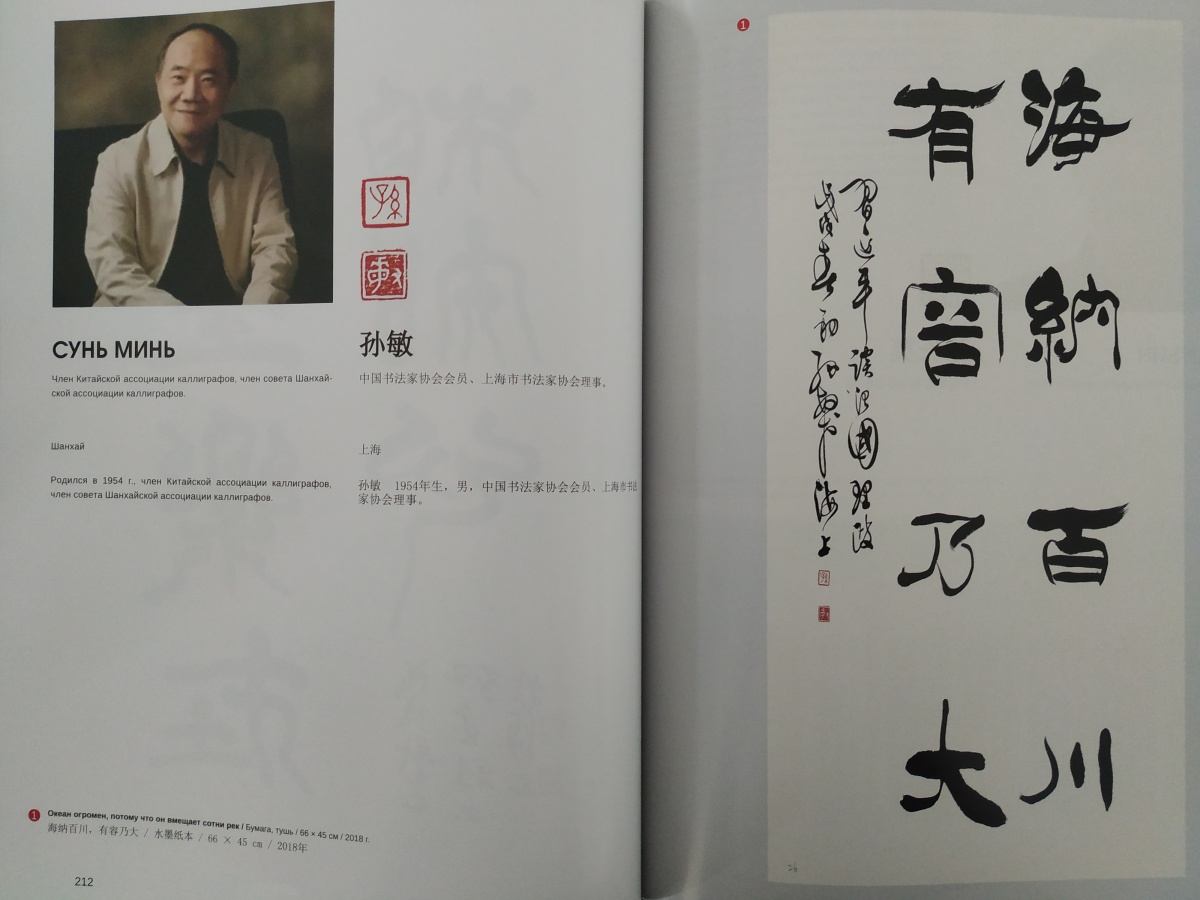 孫
敏
СУНЬ МИНЬ
Член Китайской ассоциации каллиграфов, член совета Шанхай-
ской ассоциации каллиграфов.
Шанхай
Родился в 1954 г., член Китайской ассоциации каллиграфов,
член совета Шанхайской ассоциации каллиграфов.
孙敏
中国书法家协会会员、上海市书法家协会理事。
上海
孙敏 1954年生，男，中国书法家协会会员、上海市书法
家协会理事。
1 Океан огромен, потому что он вмещает сотни рек / Бумага, тушь / 66 × 45 см / 2018 г.
海纳百川，有容乃大 / 水墨纸本 / 66 × 45 cm / 2018年
212
1
海納百川
有容乃大
習近平談治國理政
戊戌春初孫敏書海上